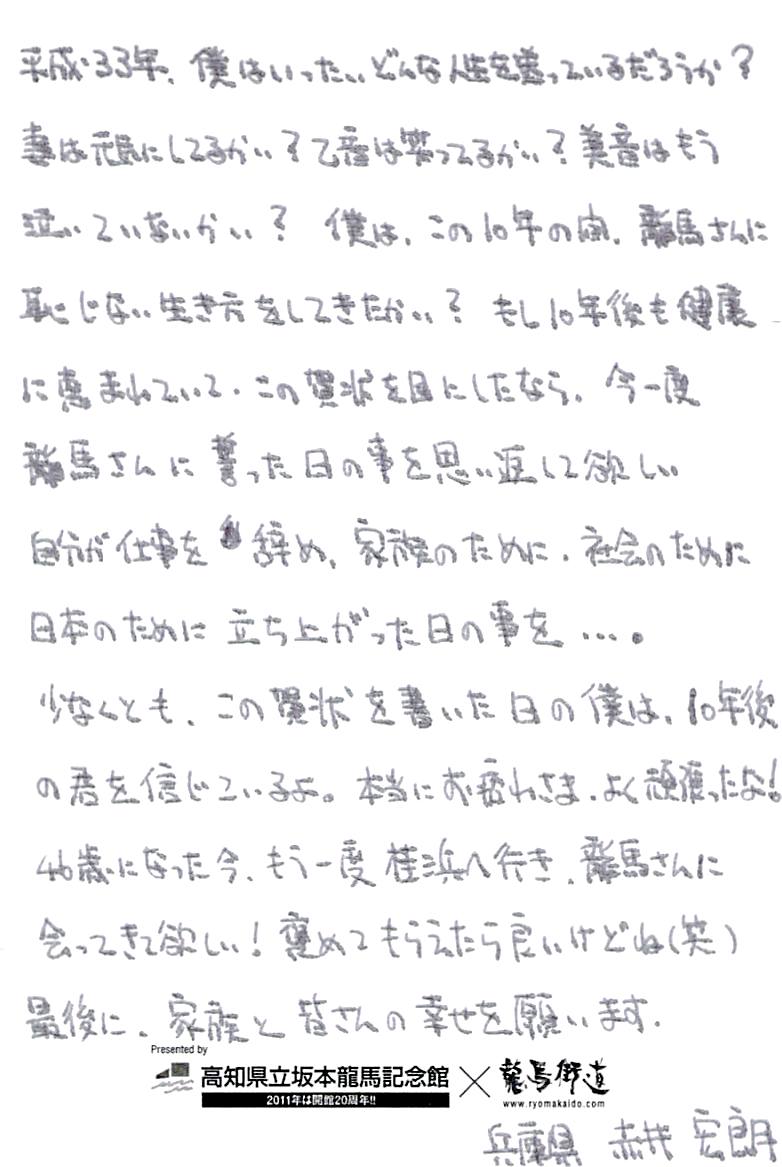 平成33年、僕はいったいどんな人生を送っているだろうか?
妻は元気にしてるかい?乙音は笑ってるかい?美音はもう
泣いていないかい? 僕は、この10年の間、龍馬さんに
恥じない生き方をしてきたかい? もし10年後も健康
に恵まれていて、この賀状を目にしたなら、今一度
龍馬さんに誓った日の事を思い返して欲しい
自分が仕事を 辞め、家族のために、社会のために
日本のために 立ち上がった日の事を…。
少なくとも、この賀状を書いた日の僕は、10年後
の君を信じているよ。本当にお疲れさま、よく頑張ったな!
46歳になった今、もう一度 桂浜へ行き、龍馬さんに
会ってきて欲しい! 褒めてもらえたら良いけどね(笑)
最後に、家族と皆さんの幸せを願います.
Presented by
高知県立坂本龍馬記念館 × 龍馬街道
2011年は開館20周年!! www.ryomakaido.com
兵庫県 赤井 宏朗